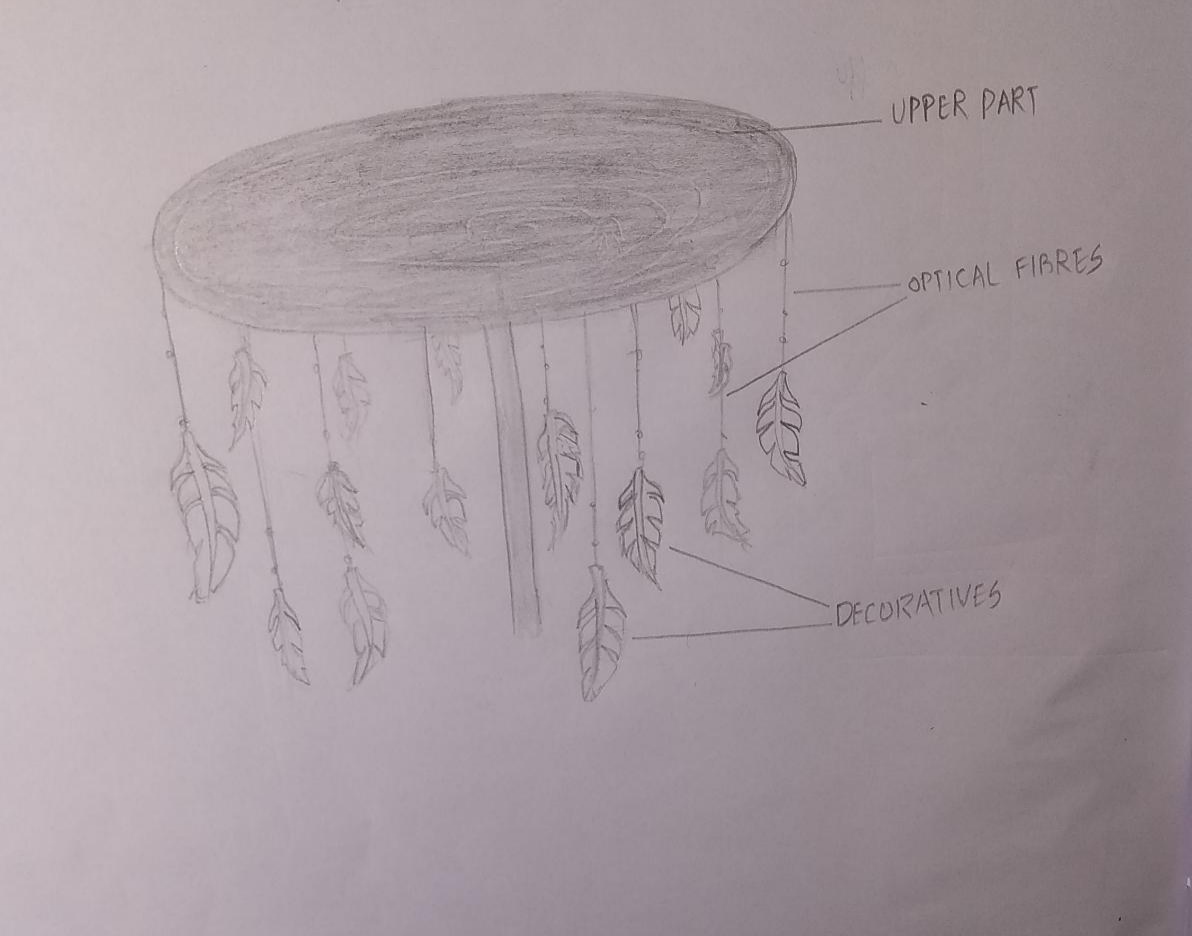 UPPER PART
OPTICAL FIBRES
DECORATIVES